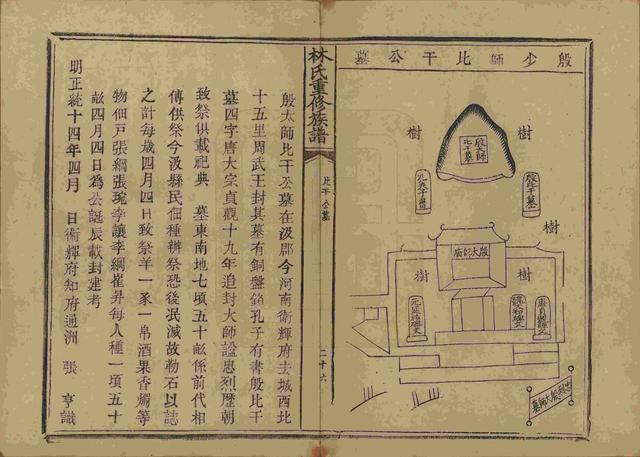 殷少師比干公墓
樹
樹
殷太師
比干墓
殷比干墓
樹
樹
樹
殷太師廟
林氏重修族譜
比干公墓
二十六
殷太師比干公墓在汲郡今河南衛輝府去城西北
十五里周武王封其墓有銅盤銘孔子有書殷比干
墓四字唐太宗貞觀十九年追封大師諡忠烈歷朝
致祭俱載祀典　墓東南地七頃五十畝係前代相
傳供祭今汲縣民佃種辦祭恐後泯滅故勒石以誌
之計每歲四月四日致祭羊一豕一帛酒果香燭等
物佃戶張綱張琬李讓李綱崔昇每人種一頃五十
畝四月四日為公誕辰載封建考
明正統十四年四月　日衞輝府知府通洲　張　亨識